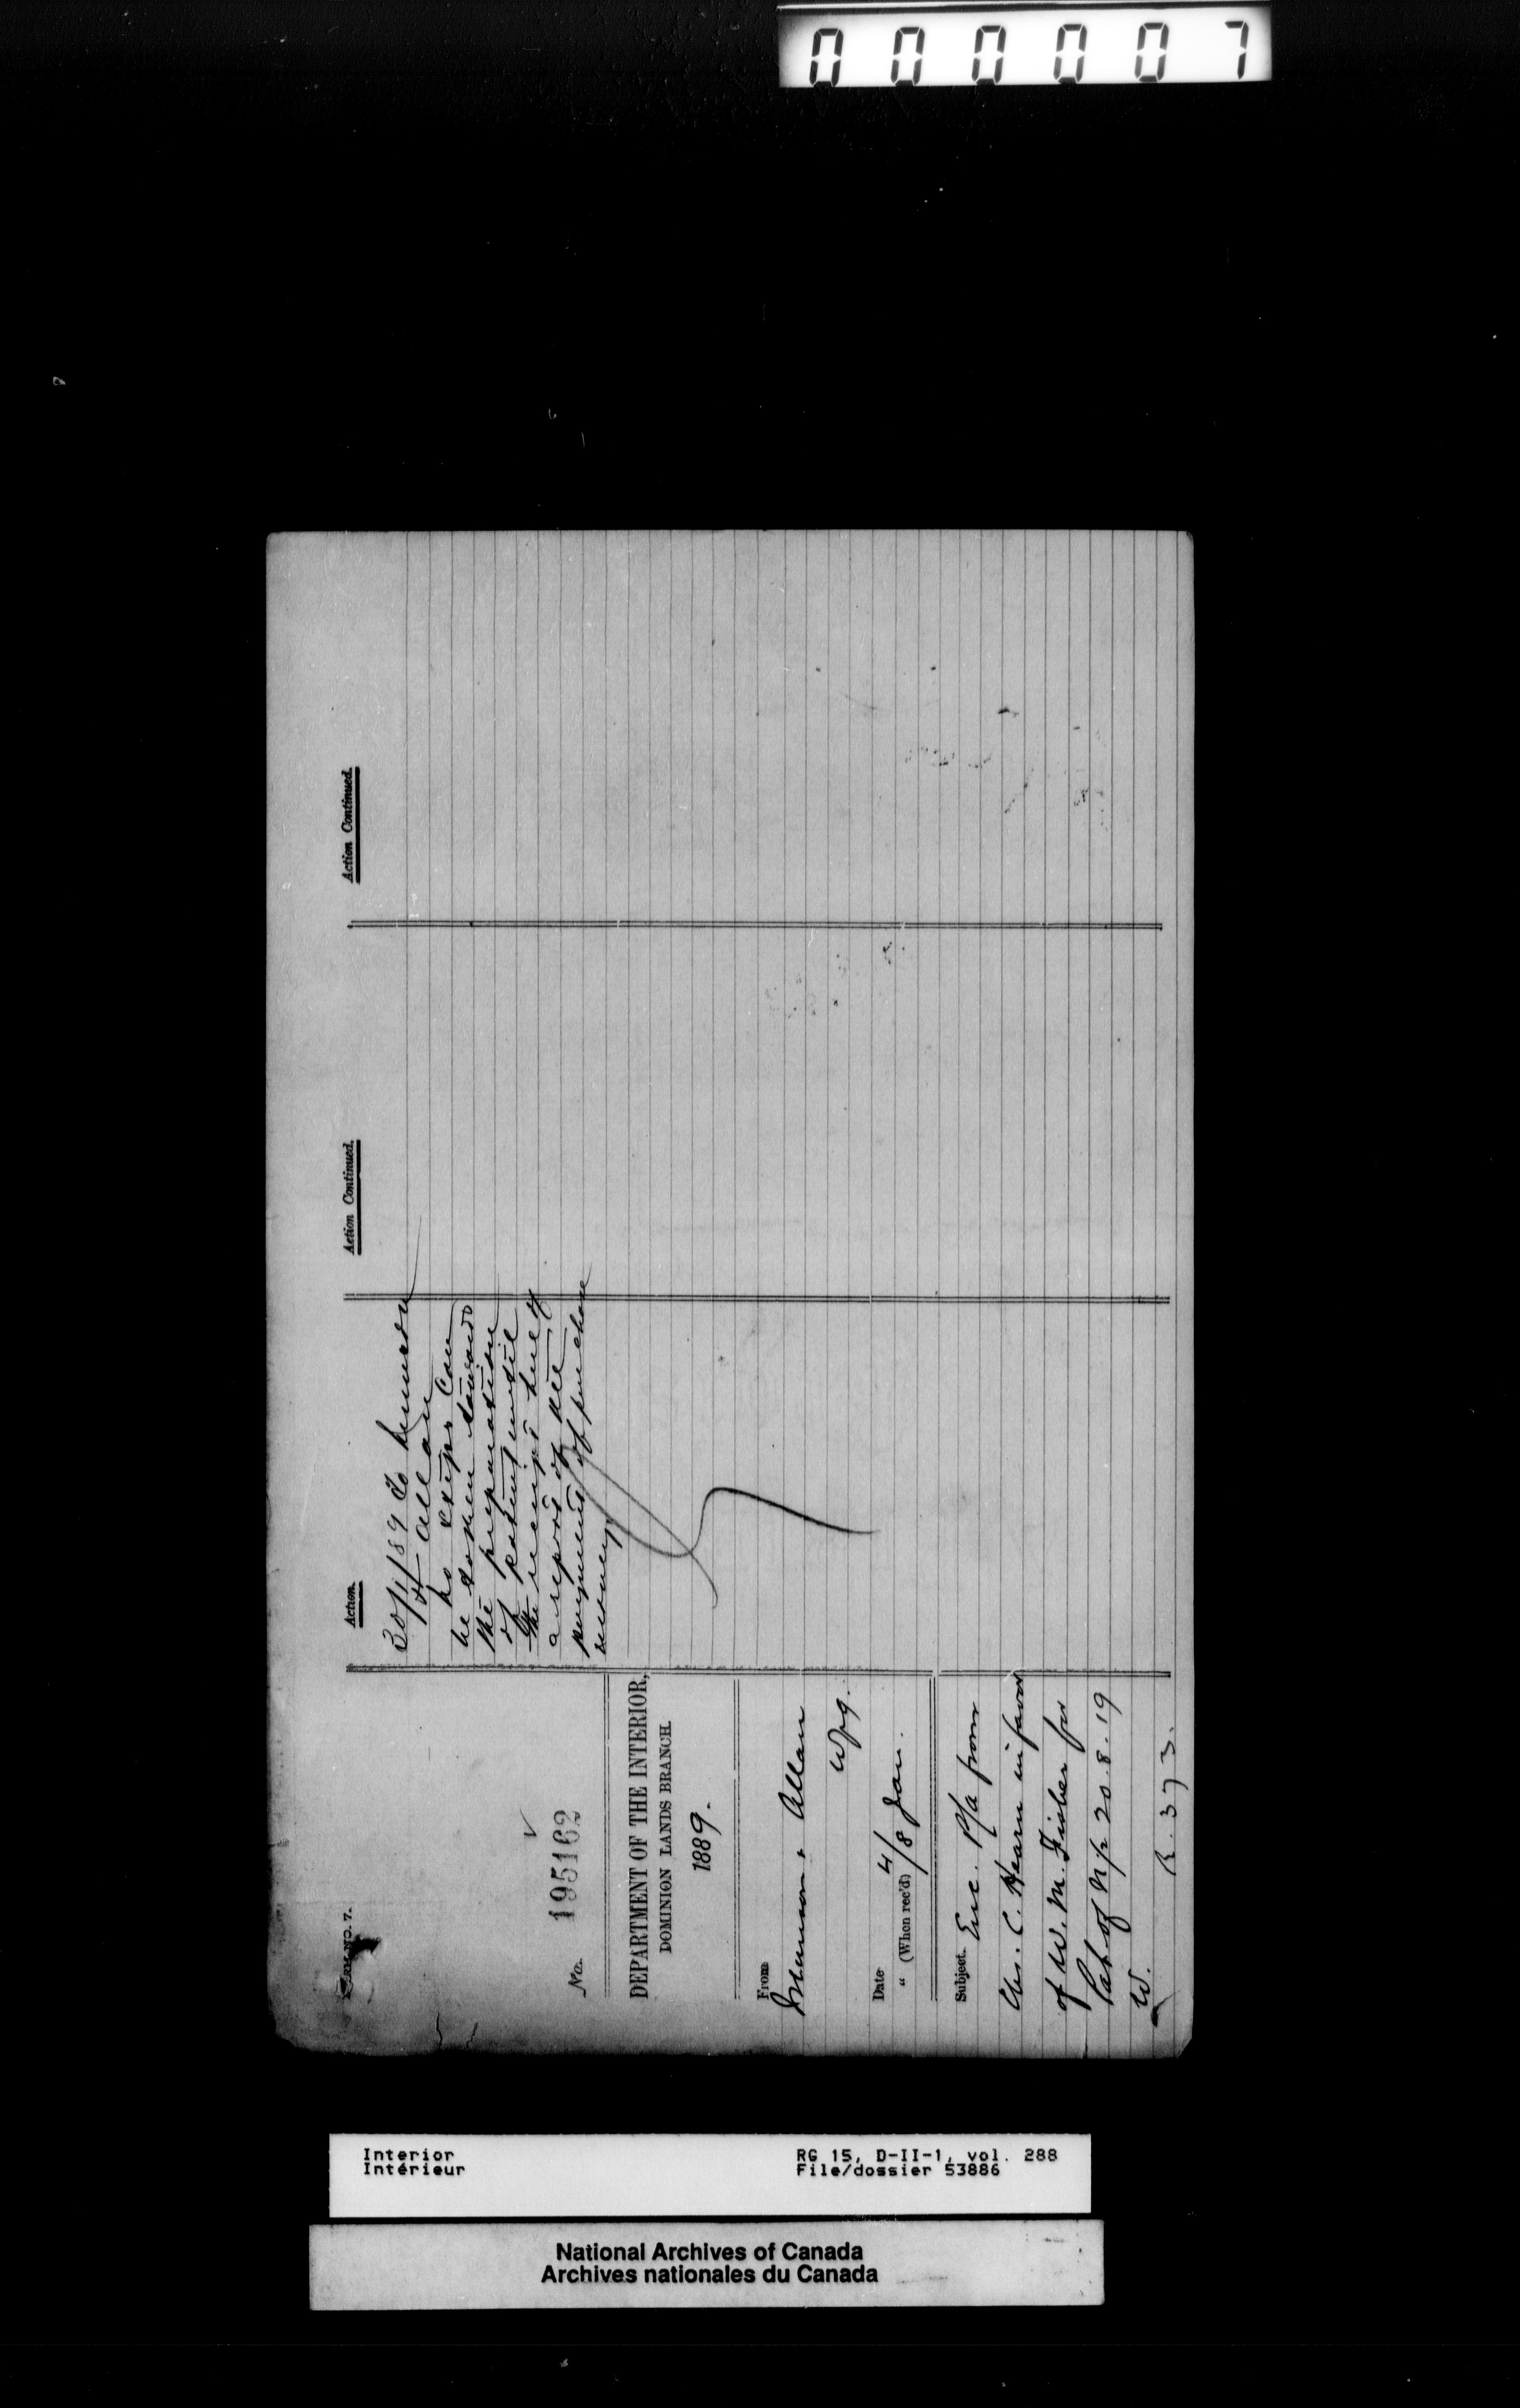 000007
FORM NO. 7.
No. 195162
DEPARTMENT OF THE INTERIOR,
DOMINION LANDS BRANCH.
1889.
From
Munson & Allan
Wpg.
Date 4/8 Jan.
" (When rec'd)
Subject. Enc. P/a from
C. Hearn in favor
of W. M. Fisher for
Pat. of N½ 20.8.19
W.
R. 373.
Action.
30/1/89 To Munson
& Allan
no steps can
be taken towards
the preparation
of patent until
the receipt here of
a report of the
payment of purchase
money
Action Continued.
Action Continued.
Interior
Intérieur
RG 15, D-II-1, vol. 288
File/dossier 53886
National Archives of Canada
Archives nationales du Canada